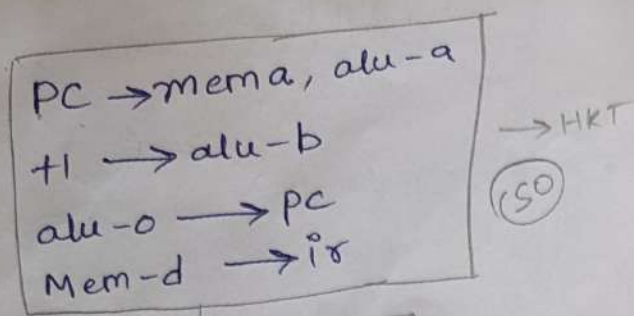 PC → mem a, alu-a
+1 → alu-b
alu-o → PC
Mem-d → ir
→ HKT
CSO